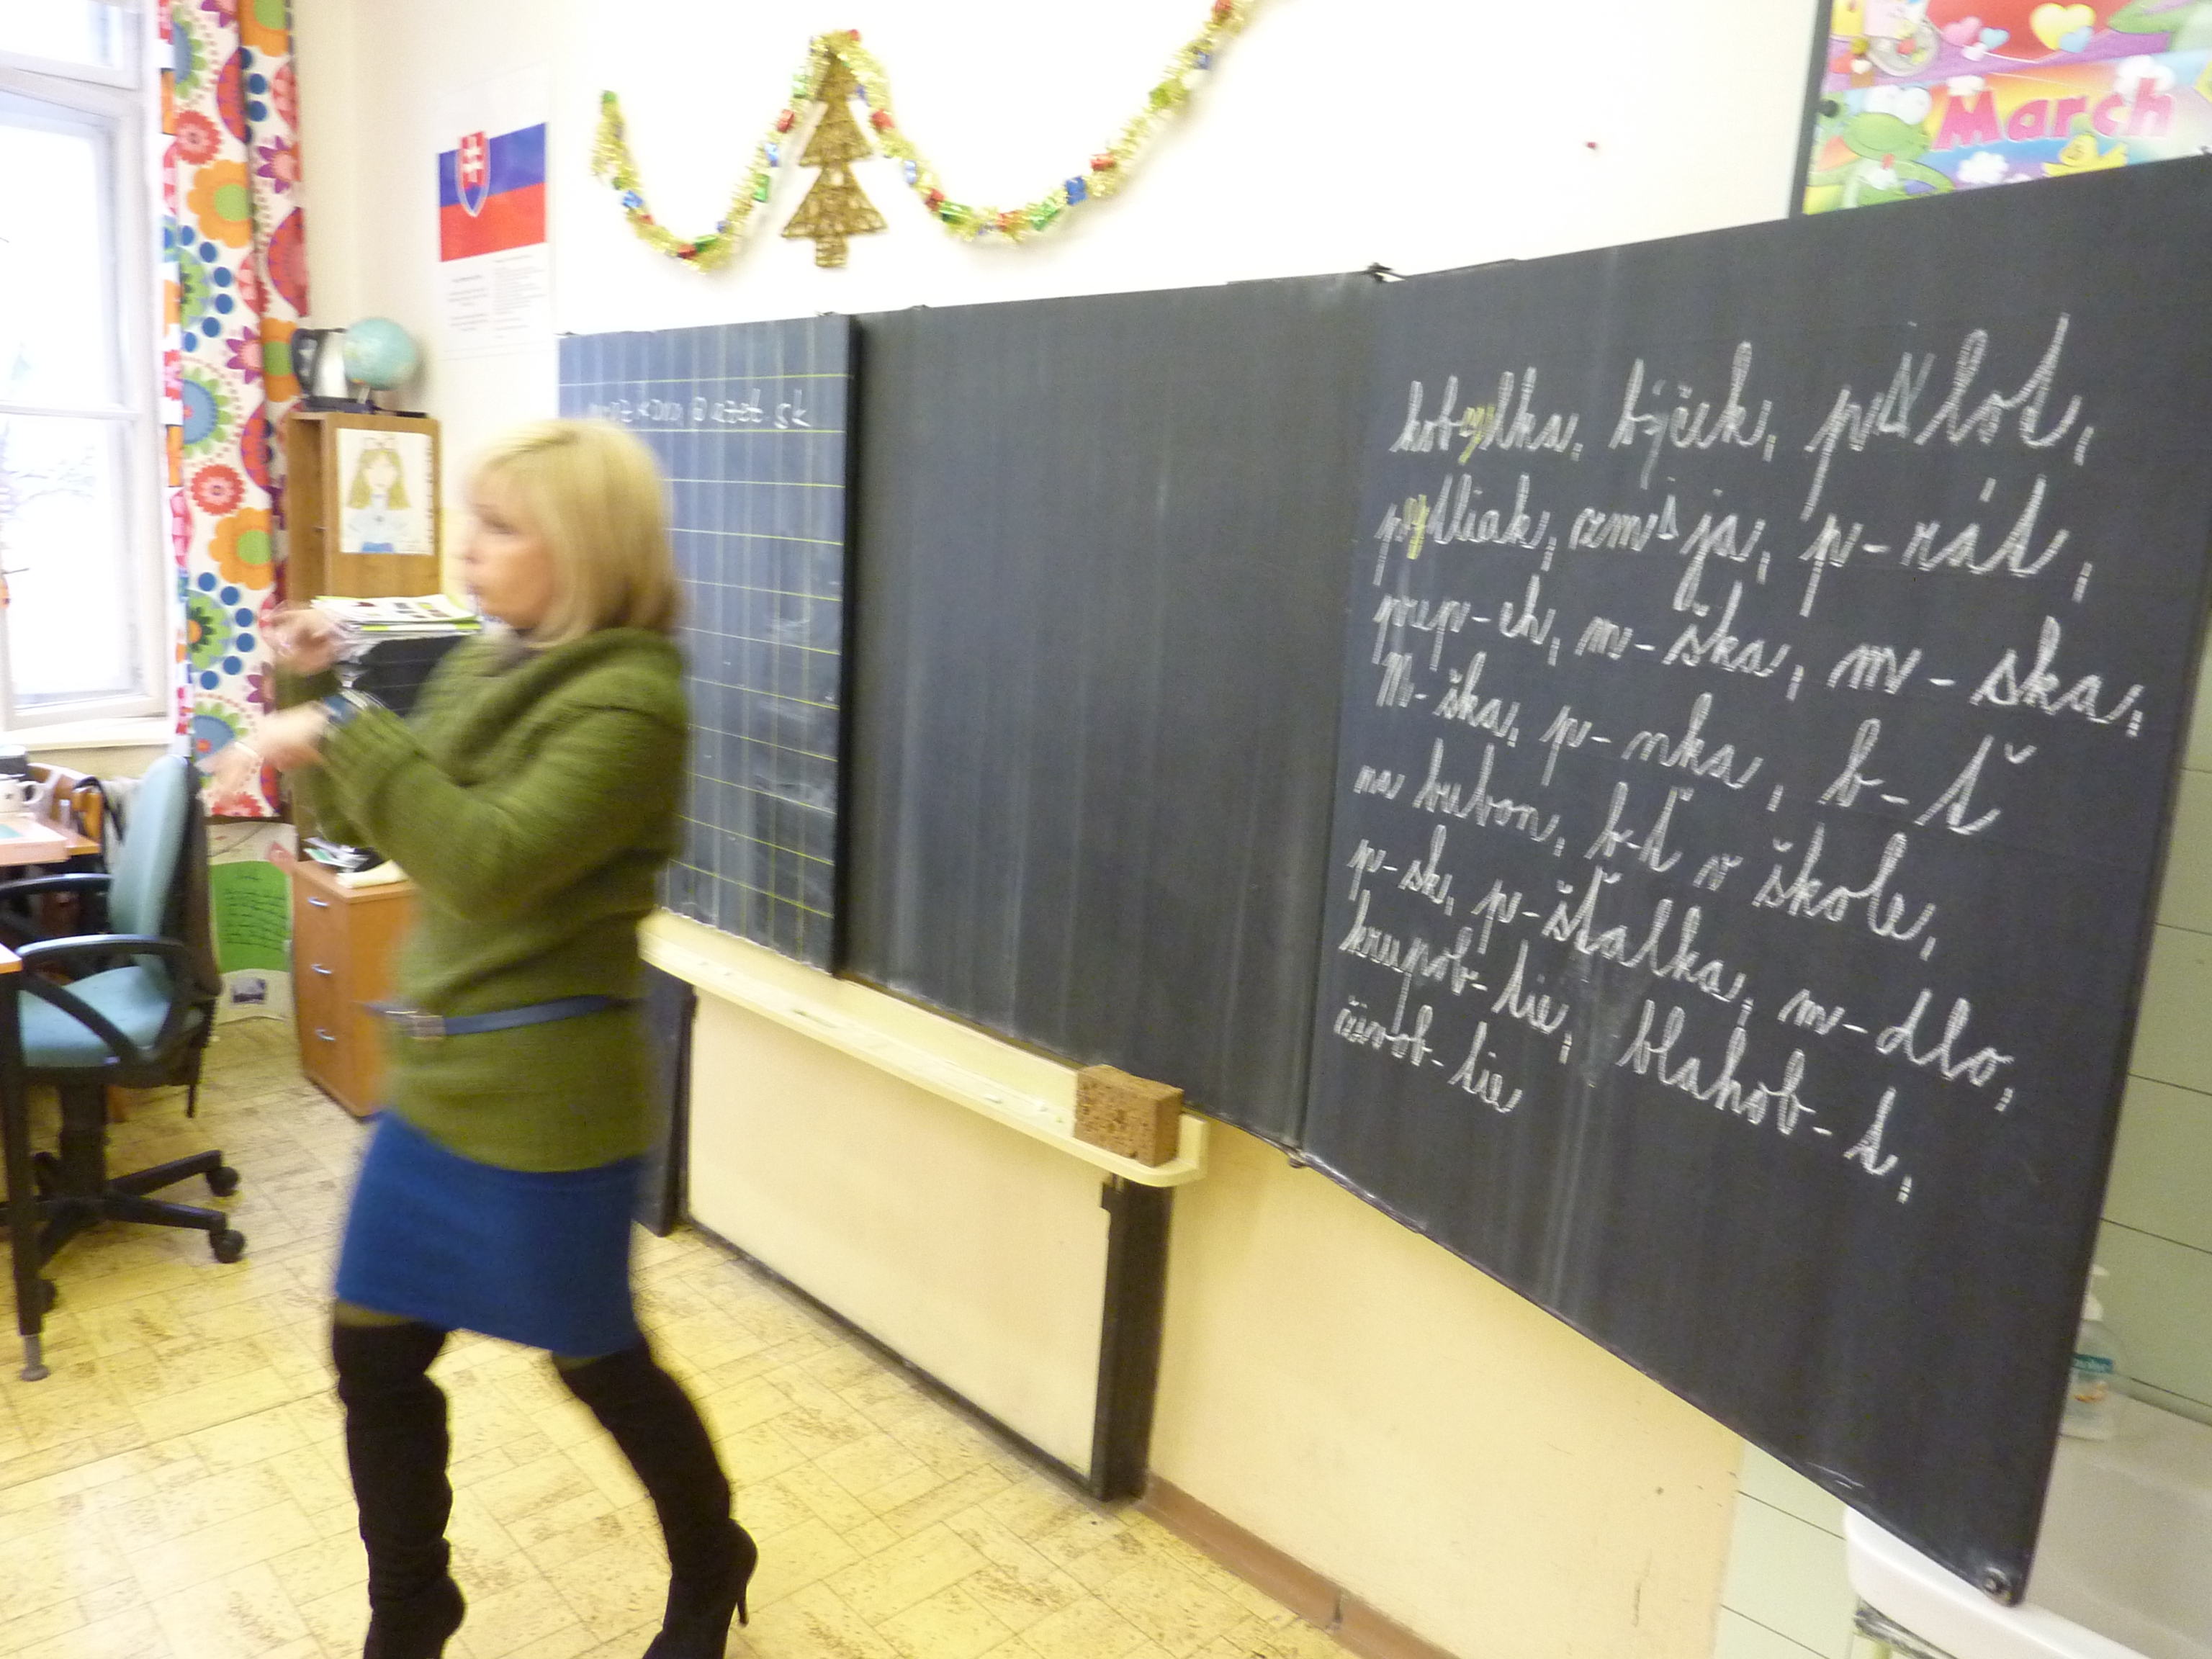 March
kobylka, býček, pilot,
pytliak, zmija, p-rát,
prep-ch, m-ška, m-ska,
M-ška, p-nka, b-ť
na bubon, b-ť v škole,
p-sk, p-šťalka, m-dlo,
krupob-tie, blahob-t,
čírob-tie